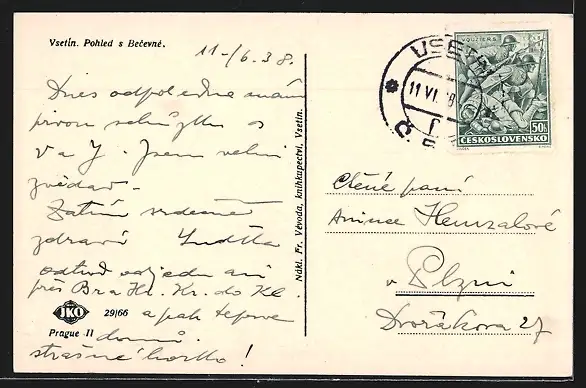 Vsetín. Pohled s Bečevné.
11-/6.38.
Dnes odpoledne mám
prvou schůzku s
V a J. Jsem velmi
zvědav-
Zatím srdečně
zdraví Luďka
odtud odjedu asi
přes Bra Hr. Kr. do Kl
a pak teprve
domů.
strašné horko!
IKO
29/66
Prague II
Nákl. Fr. Vévoda, knihkupectví, Vsetín.
VSETÍN
11 VI. 38
VOUZIERS
50h
ČESKOSLOVENSKO
Ctěné paní
Anince Hemzalové
v Plzni
Dvořákova 27